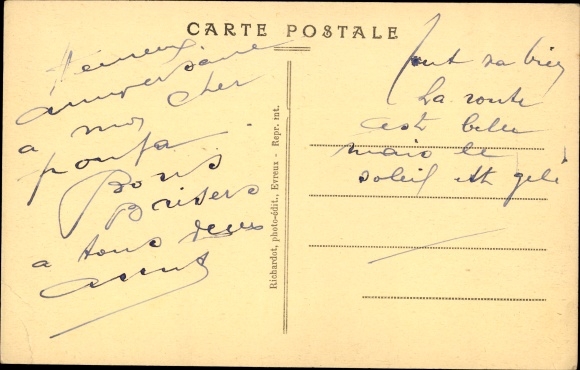 CARTE POSTALE
Heureux
anniversaire
a mon cher
poupa.
Bons
Baisers
a tous deux
Tout va bien
La route
est belle
mais le
soleil est gelé
Richardot, photo-édit., Evreux - Repr. int.